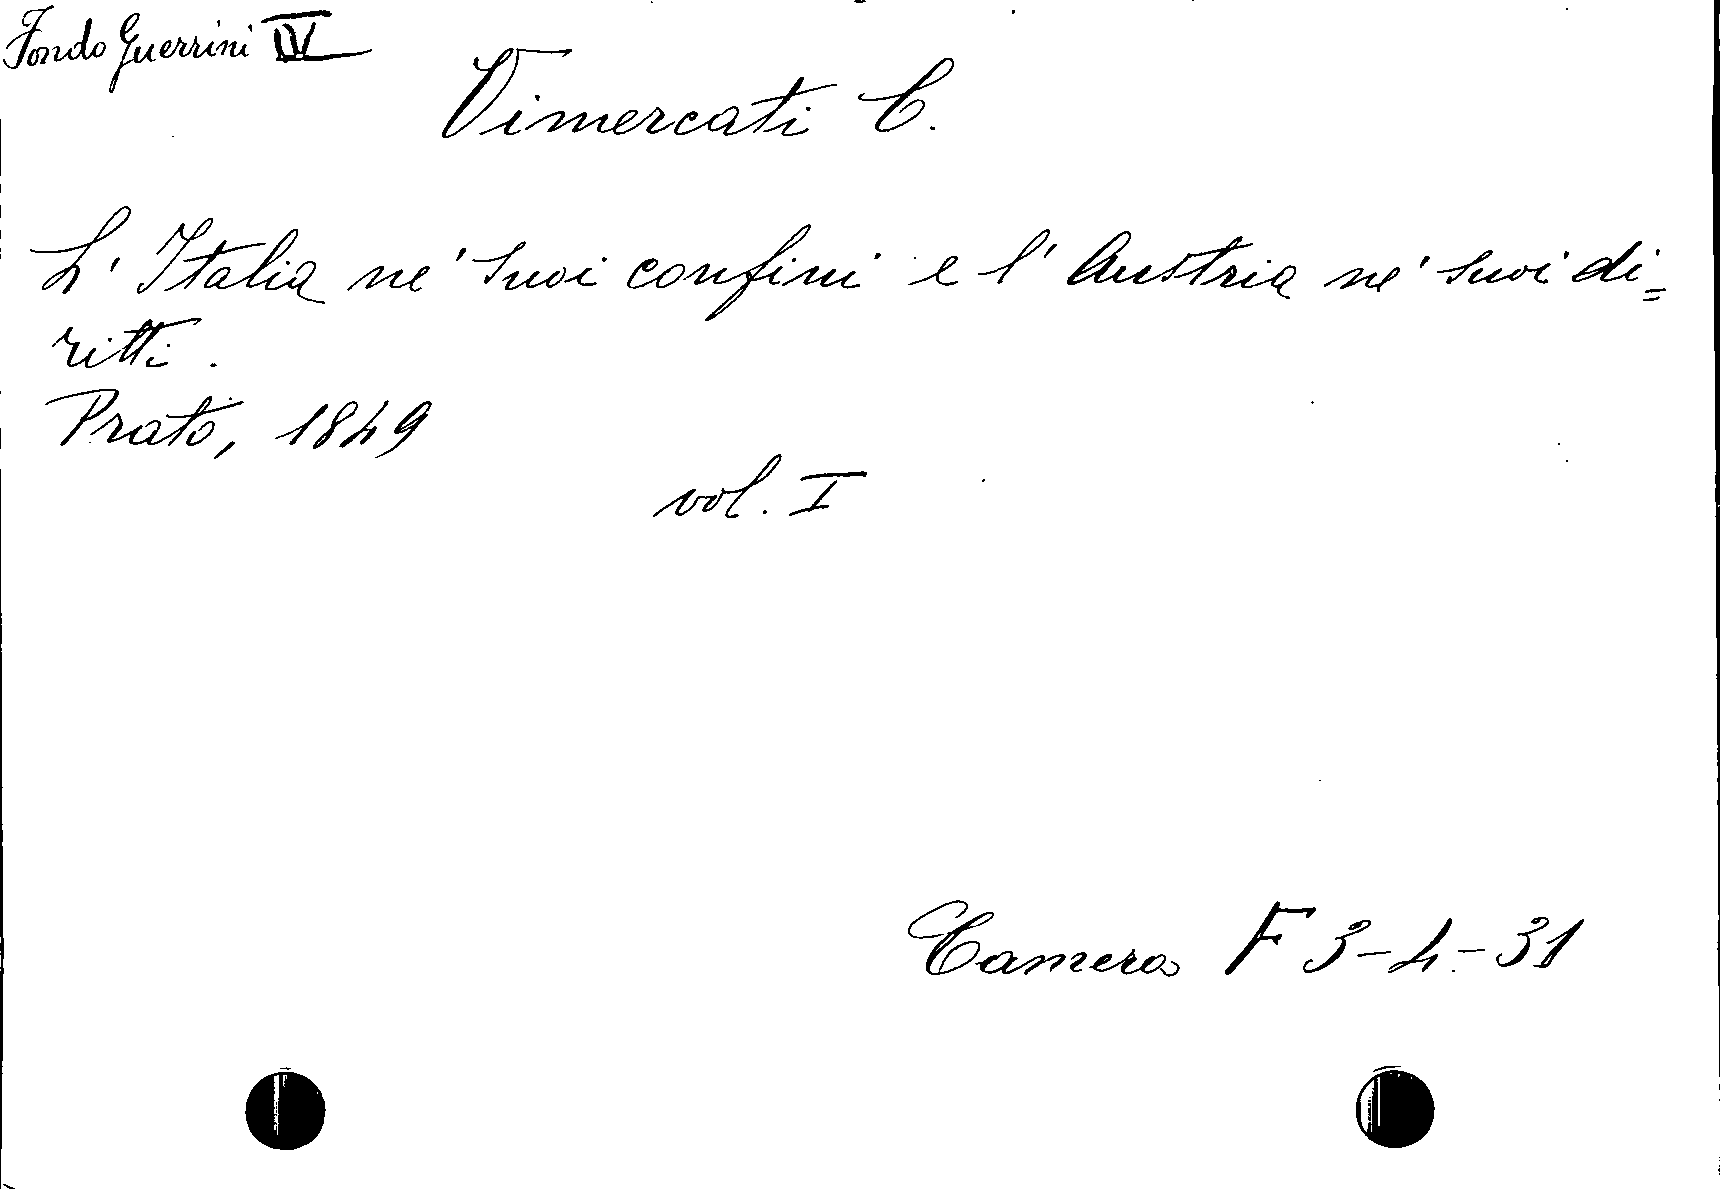 Fondo Guerrini IV
Vimercati C.
L' Italia ne' suoi confini e l' Austria ne' suoi di=
ritti.
Prato, 1849
vol. I
Camera F 3-4-31